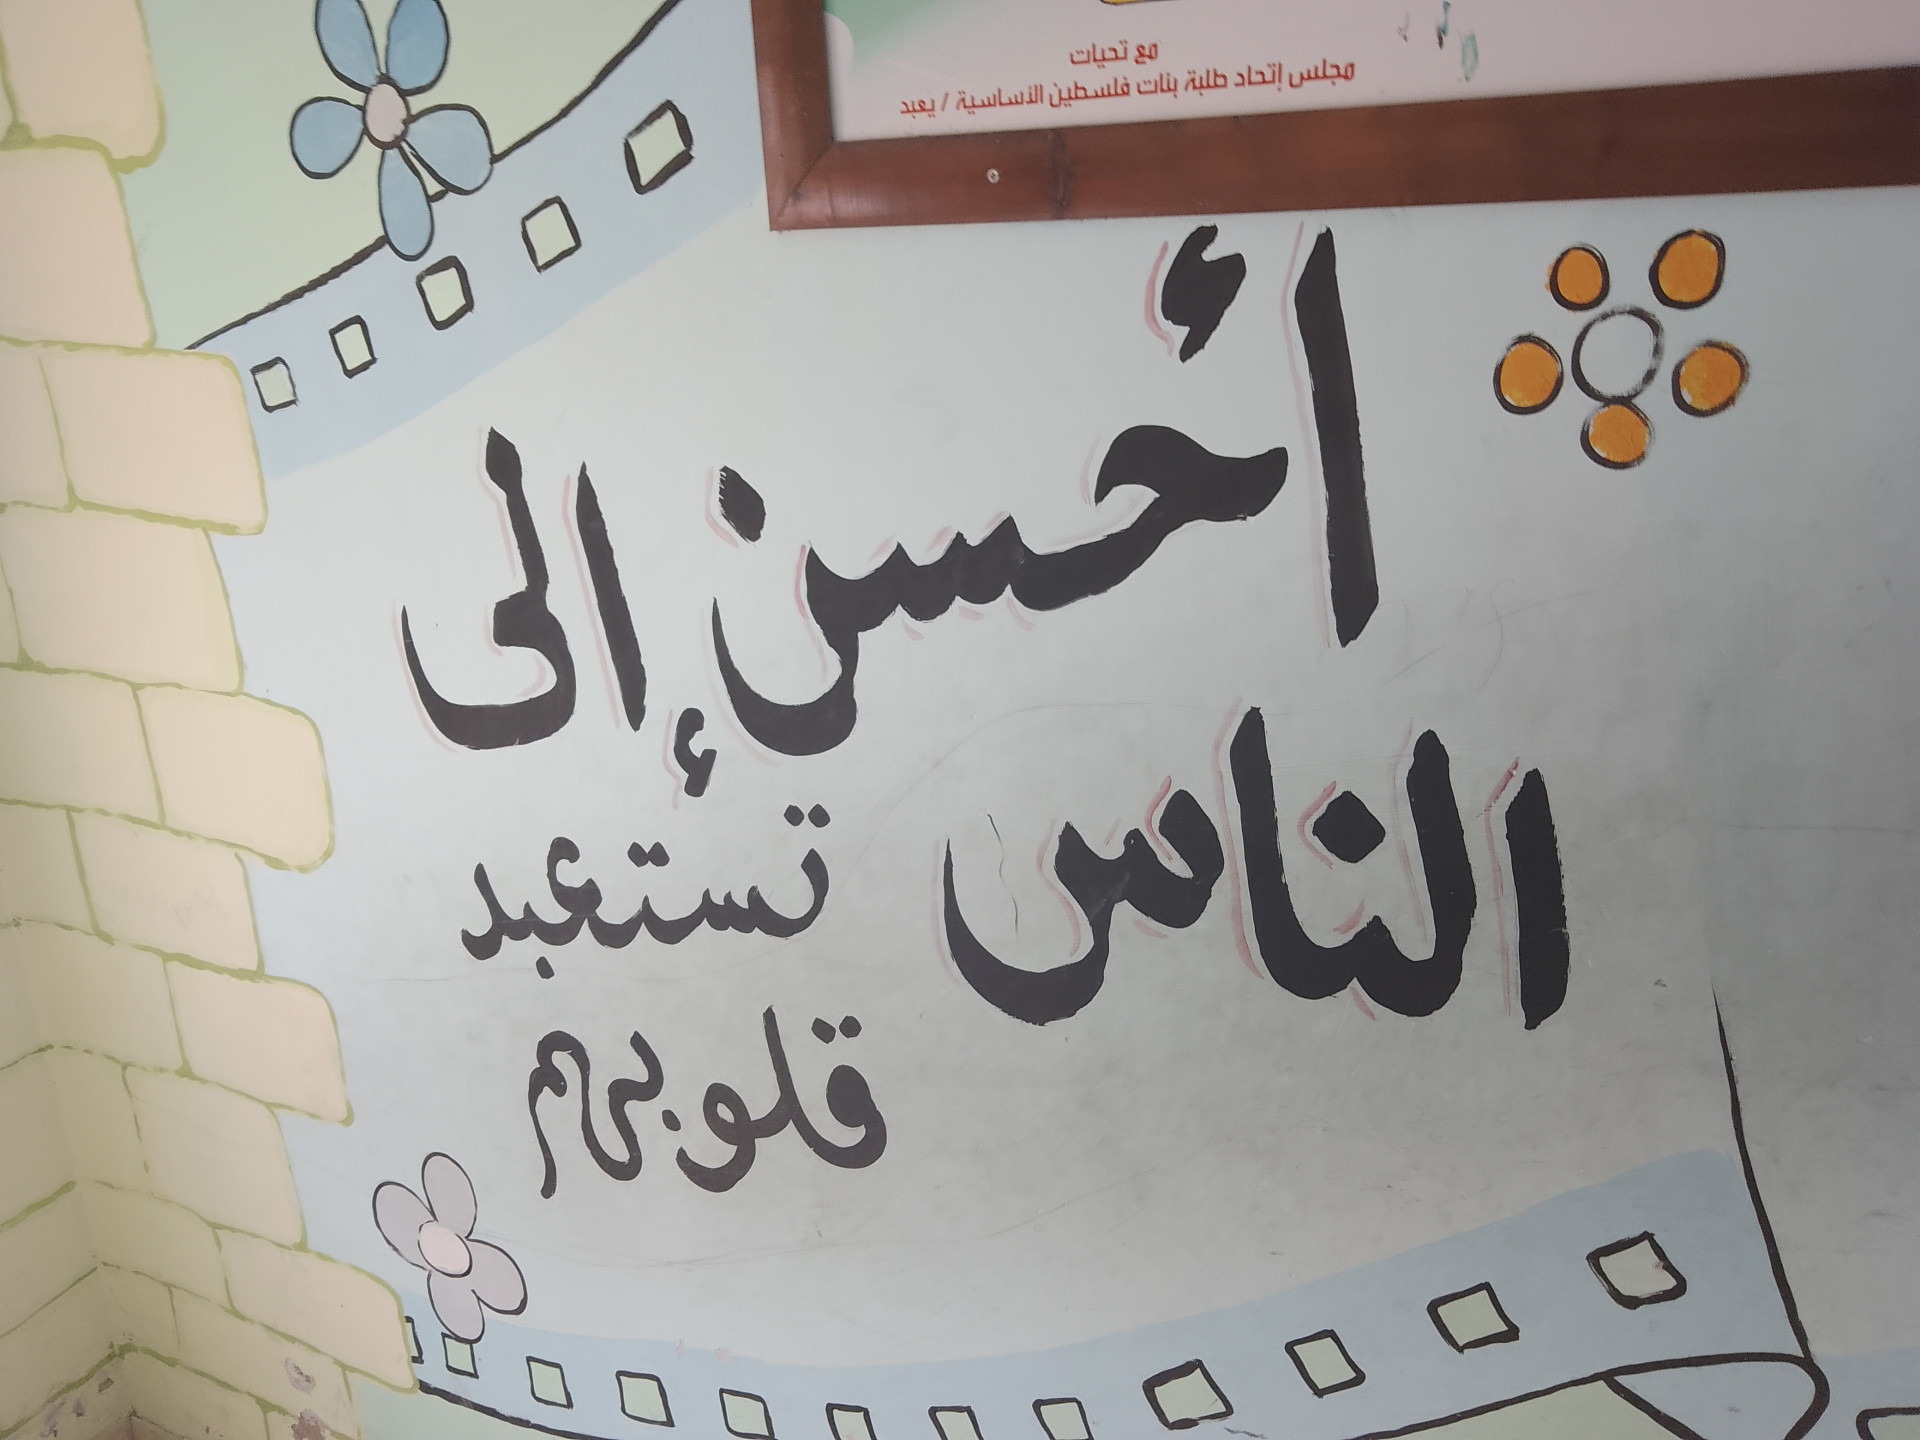 مع تحيات
مجلس إتحاد طلبة بنات فلسطين الأساسية / يعبد
أحسن إلى
الناس
تستعبد
قلوبهم